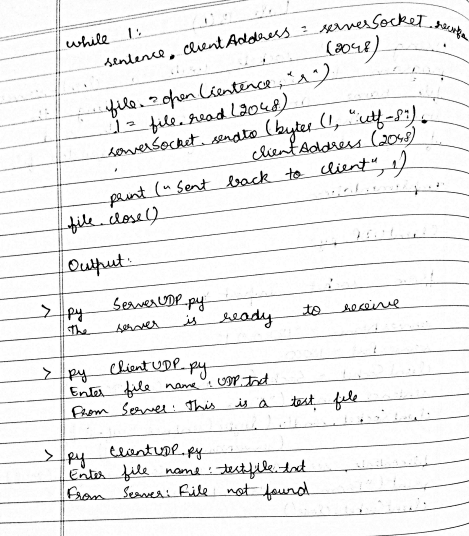 while 1:
sentence, clientAddress = serverSocket.recvfro
(2048)
file = open(sentence, "r")
l = file.read(2048)
serverSocket.sendto (bytes (l, "utf-8"),
clientAddress (2048)
print ("Sent back to client", l)
file.close()
Output:
> py ServerUDP.py
The server is ready to receive
> py ClientUDP.py
Enter file name: UDP.txt
From Server: This is a test file
> py ClientUDP.py
Enter file name: testfile.txt
From Server: File not found